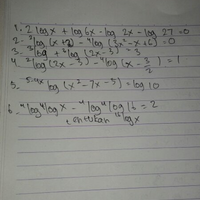 1. 2 log x + log 6x - log 2x - log 27 = 0
2. ⁴log (x+2) - ⁴log (3x²-x+6) = 0
3. ³log + ³log (2x-3) = 3
4. ²log (2x-3) - ⁴log (x - 3/2) = 1
5. ⁵⁻⁴ˣlog (x²-7x-5) = log 10
6. ⁴log ⁴log x - ⁴log ⁴log ⁴log 16 = 2
tentukan ¹⁶log x